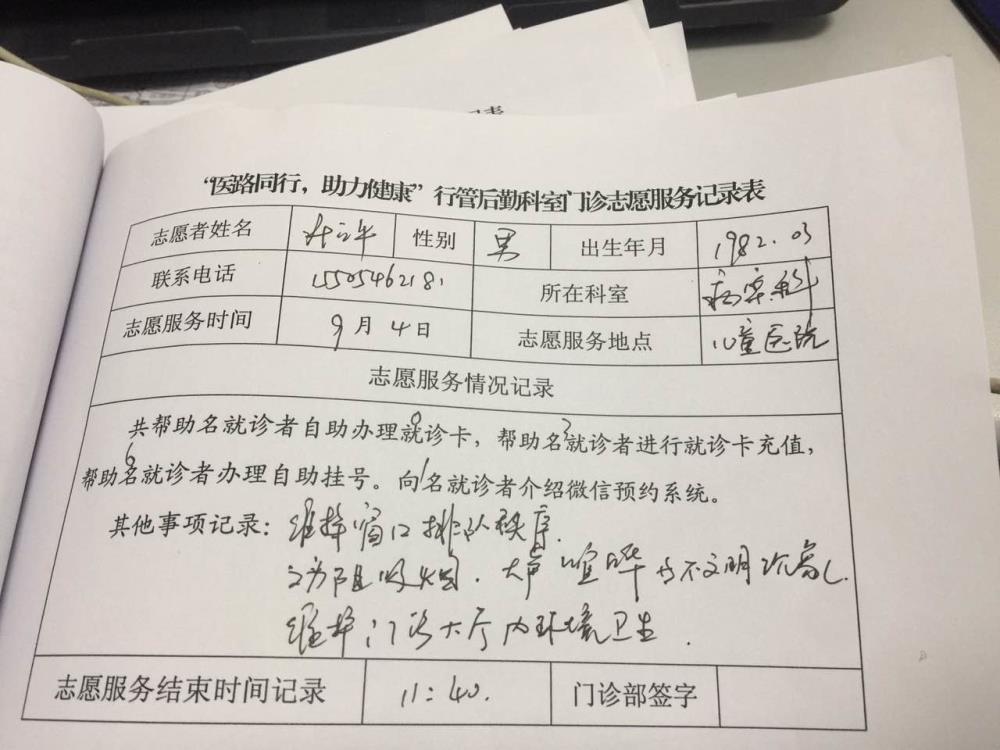 “医路同行，助力健康”行管后勤科室门诊志愿服务记录表
志愿者姓名 性别 男 出生年月 1982.03
联系电话 15505462181 所在科室 病案科
志愿服务时间 9月4日 志愿服务地点 儿童医院
志愿服务情况记录
共帮助名就诊者自助办理就诊卡，帮助名3就诊者进行就诊卡充值，
帮助6名就诊者办理自助挂号。向1名就诊者介绍微信预约系统。
其他事项记录：维持窗口排队秩序.
劝阻吸烟.大声喧哗与不文明
维持门诊大厅内环境卫生.
志愿服务结束时间记录 11:40. 门诊部签字